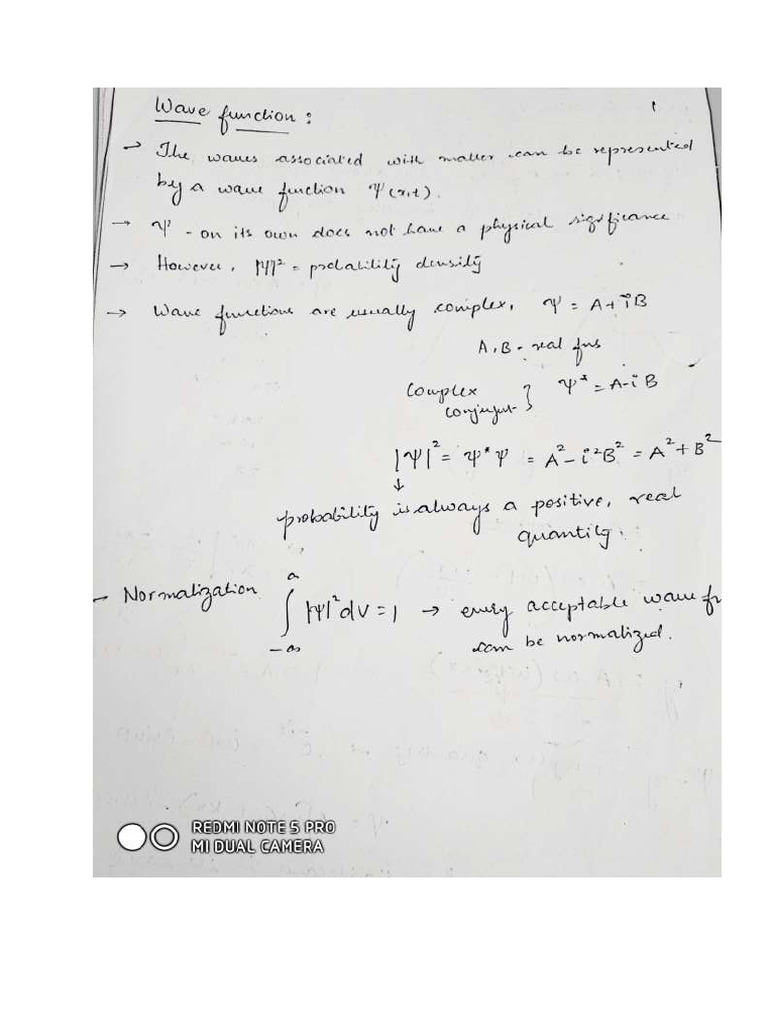 Wave function :
1
→ The waves associated with matter can be represented
by a wave function Ψ(x,t).
→ Ψ - on its own does not have a physical significance
→ However, |Ψ|² = probability density
→ Wave functions are usually complex, Ψ = A + iB
A, B - real fns
Complex } Ψ* = A - iB
conjugate
|Ψ|² = Ψ*Ψ = A² - i²B² = A² + B²
↓
probability is always a positive, real
quantity.
- Normalization ∫ |Ψ|² dV = 1 → every acceptable wave fn
-∞ ∞ can be normalized.
REDMI NOTE 5 PRO
MI DUAL CAMERA